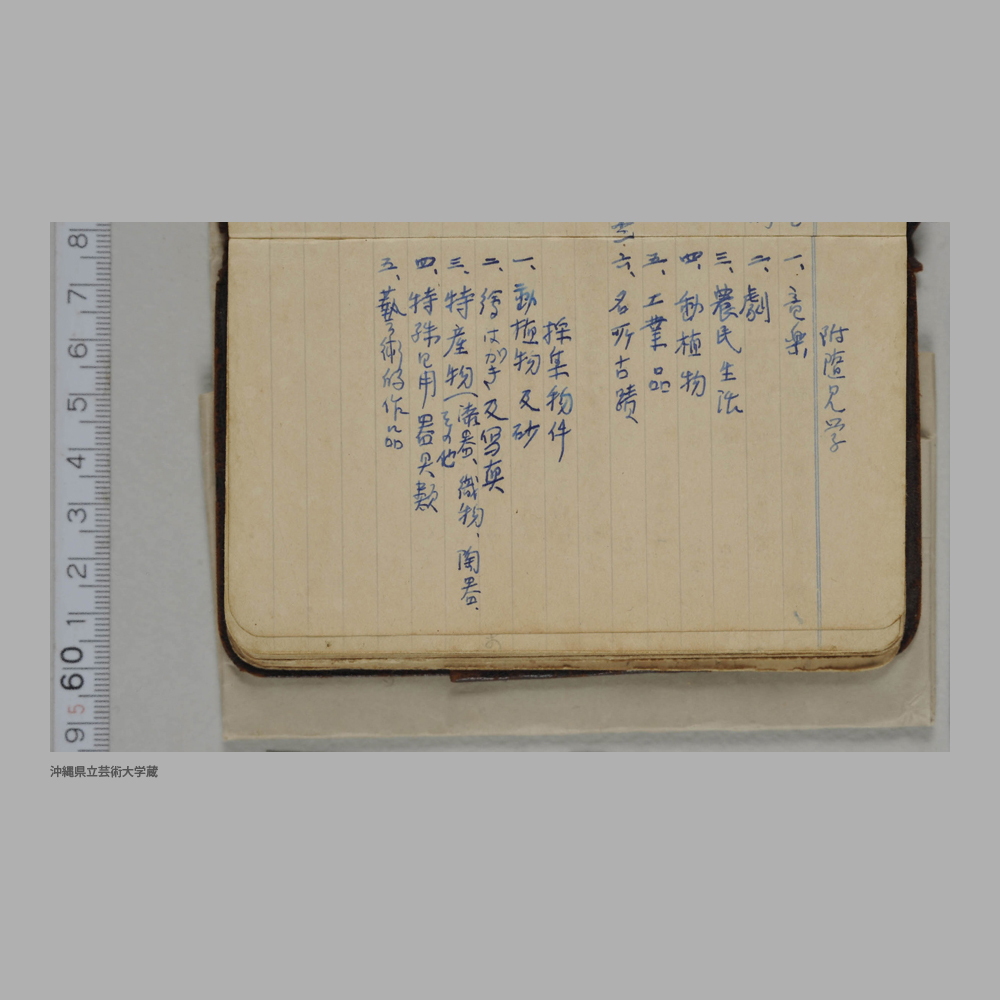 附隨見学
一、音楽、
二、劇
三、農民生活
四、動植物
五、工業品
六、名所古蹟
採集物件
一、動植物及砂
二、繪はがき及冩真
三、特産物(漆器、織物、陶器、
その他
四、特殊日用器具類
五、藝術的作品
8
7
6
5
4
3
2
1
60
9
沖縄県立芸術大学蔵